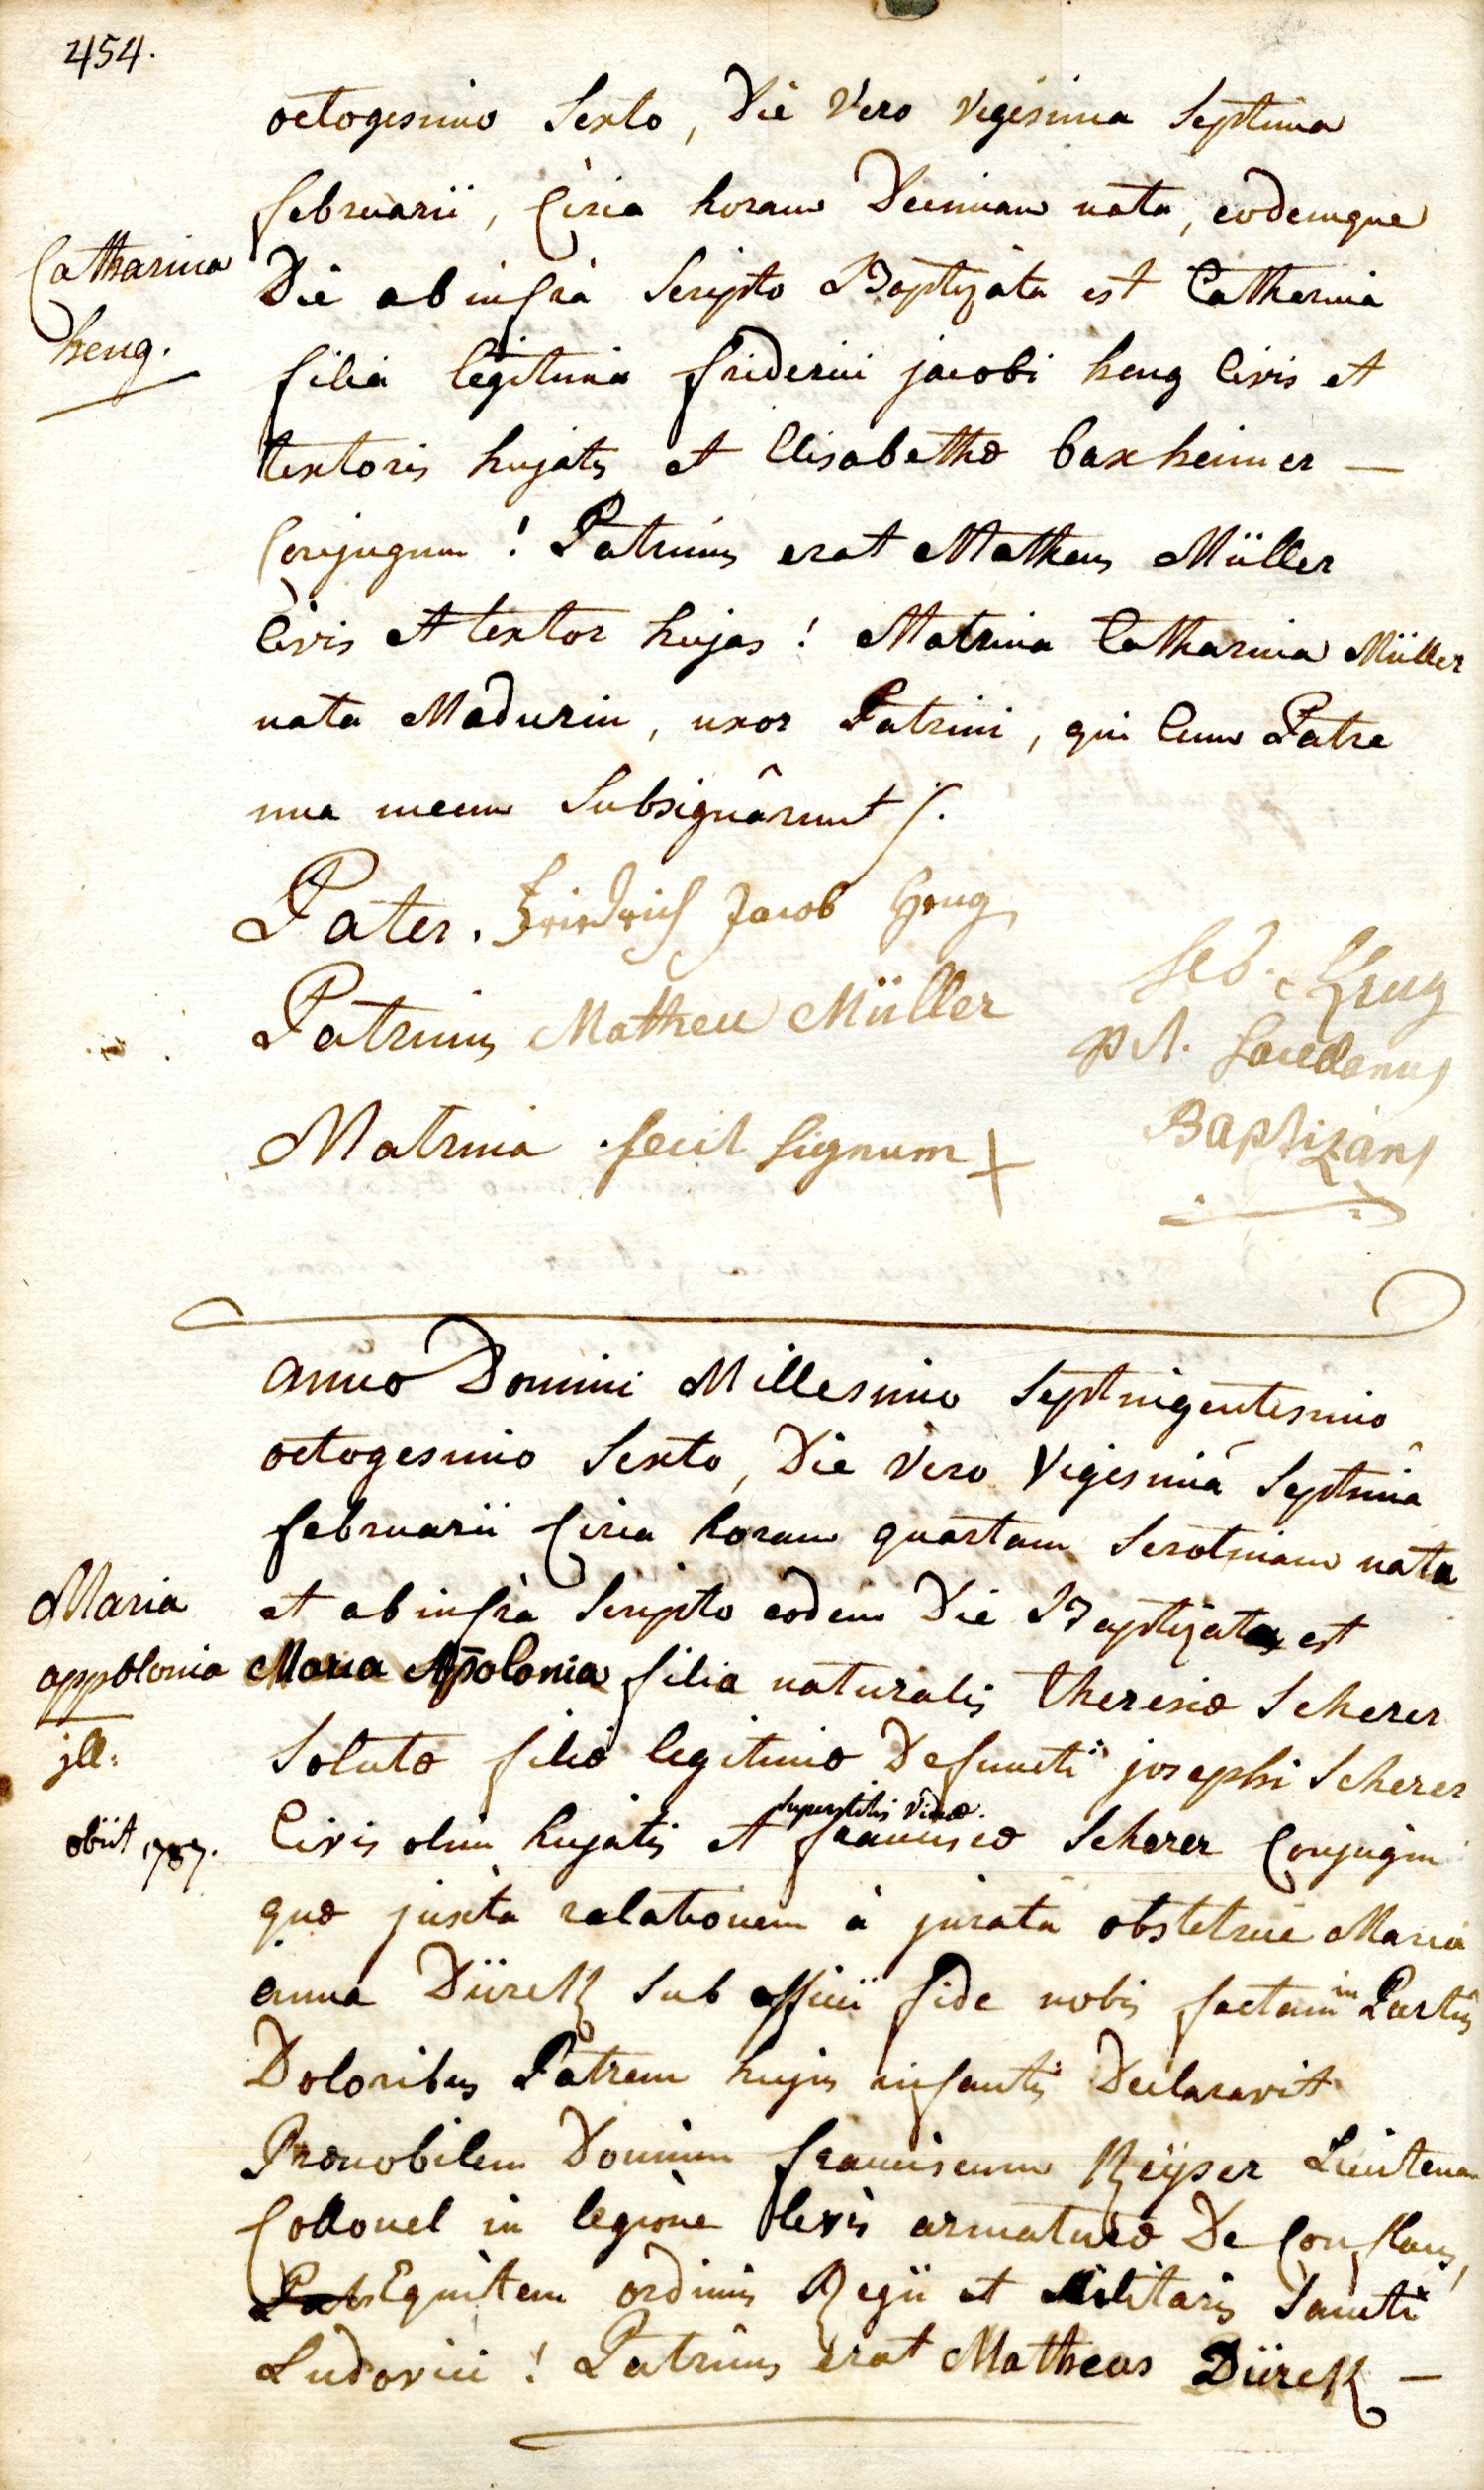 454.
octogesimo Sexto, Die Vero Vigesima Septima
februarii, Circa horam Decimam nata, eodemque
Catharina
heng.
Die ab infrà Scripto Baptizata est Catharina
filia legitima friderici jacobi heng Civis et
textoris hujatis et Elisabethæ baxheimer —
Conjugum ! Patrinus erat Matheus Müller
Civis et textor hujas ! Matrina Catharina Müller
nata Madurin, uxor Patrini, qui Cum Patre
una mecum Subsignârunt /.
Pater. Friedrich Jacob Heng
Patrinus Matheu Müller
Matrina fecit Signum +
Seb. Krug
p.t. Sacellanus
Baptizans
anno Domini Millesimo Septingentesimo
octogesimo Sexto, Die Vero Vigesimâ Septimâ
februarii Circa horam quartam Serotinam nata
Maria
appolonia
jll:
obiit 1787.
et ab infrà Scripto eodem Die Baptizata est
Maria Apolonia filia naturalis theresiæ Scherer
Solutæ filiæ legitimæ Defuncti josephi Scherer
superstitis viduæ.
Civis olim hujatis et franciscæ Scherer Conjugum
quæ juxta ralationem à jurata obstetrice Maria
anna Dürck Sub officii fide nobis factam in Partûs
Doloribus Patrem hujus infantis Declaravit
Prænobilem Dominum franciscum Keÿser Lieutenan
Collonel in legione levis armaturæ De Conflans,
Equitem ordinis Regii et Militaris Sancti
Ludovici ! Patrinus erat Matheas Dürck —